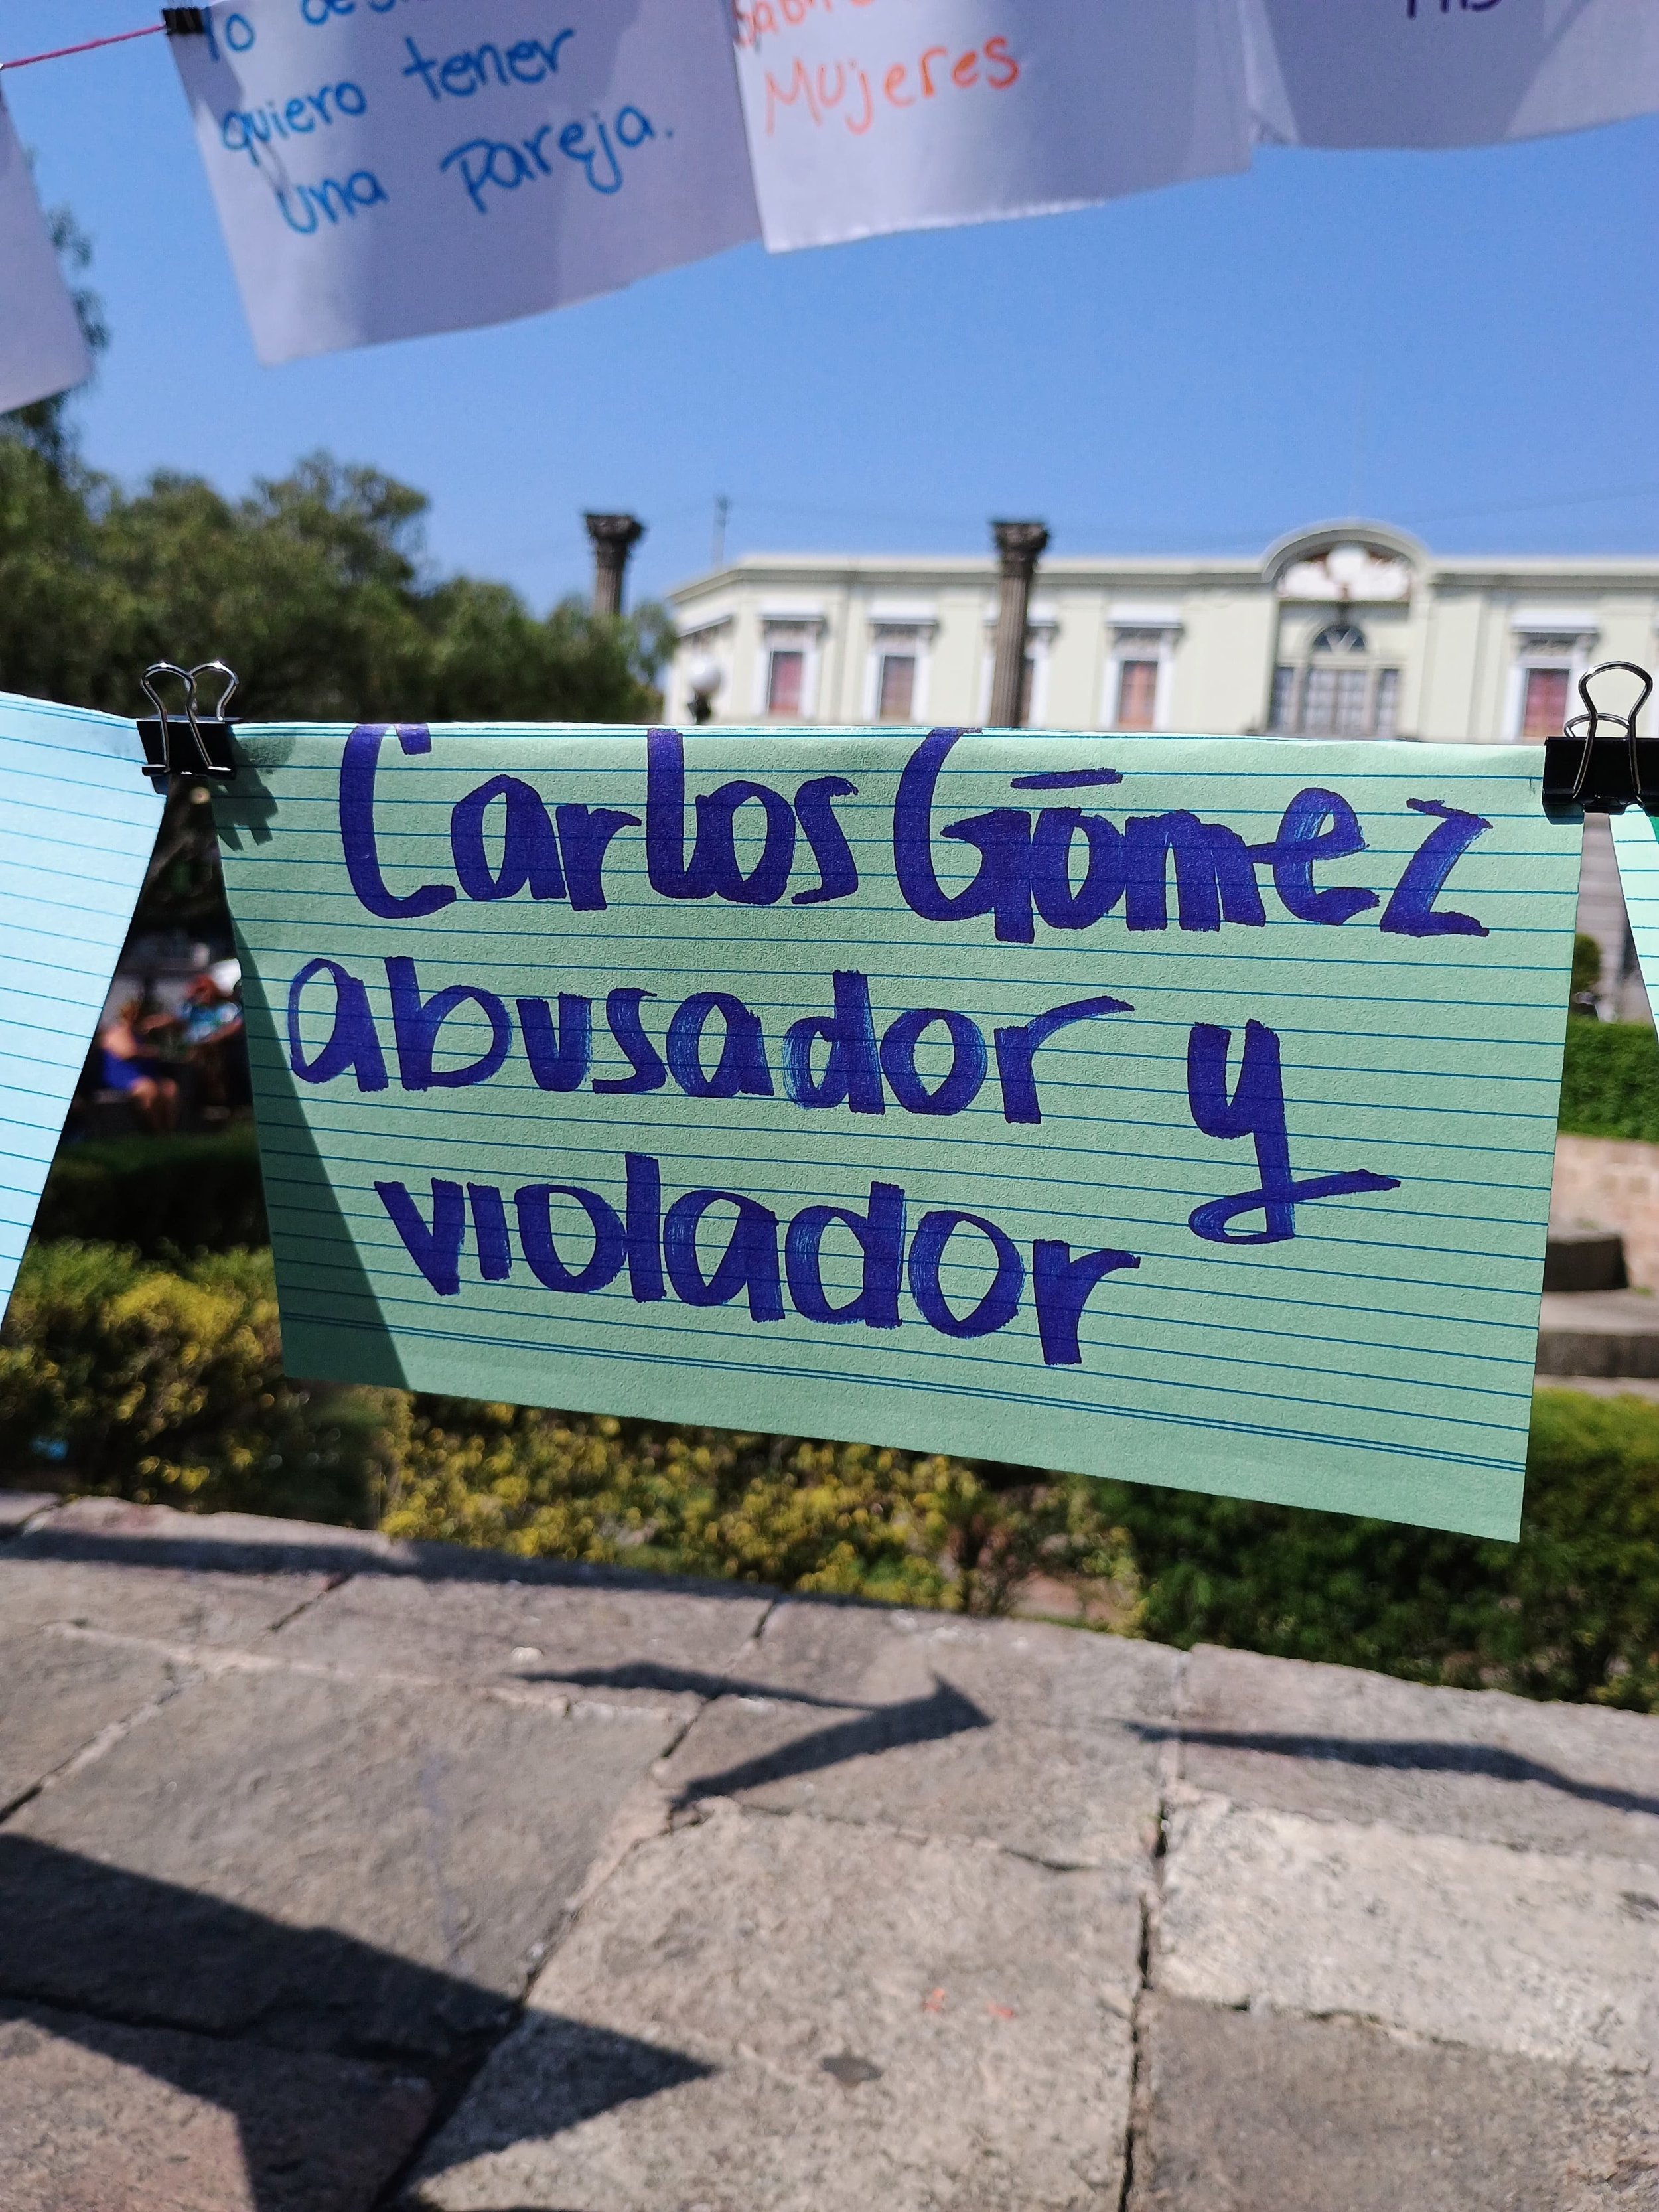 Yo
quiero tener
una pareja.
Mujeres
Carlos Gómez
abusador y
violador